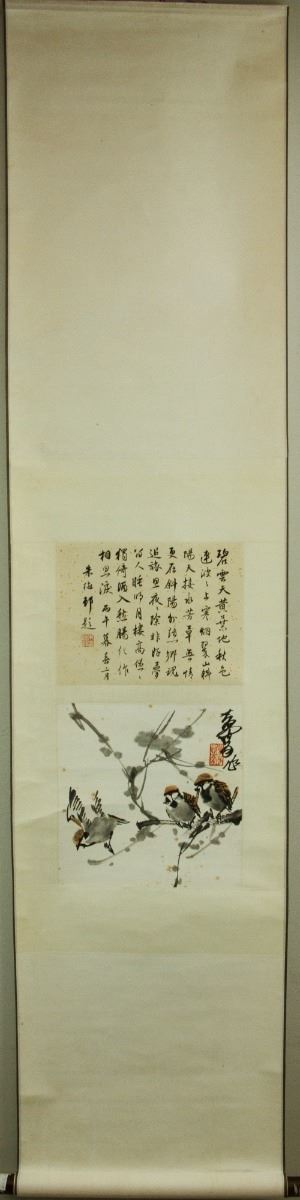 碧雲天黄葉地秋色
連波〻上寒烟翠山斜
陽天接水芳草無情
更在斜陽外黯鄉魂
追旅思夜〻除非好夢
留人睡明月樓高休
獨倚酒入愁腸化作
相思淚 丙午暮春
朱 邨題
作